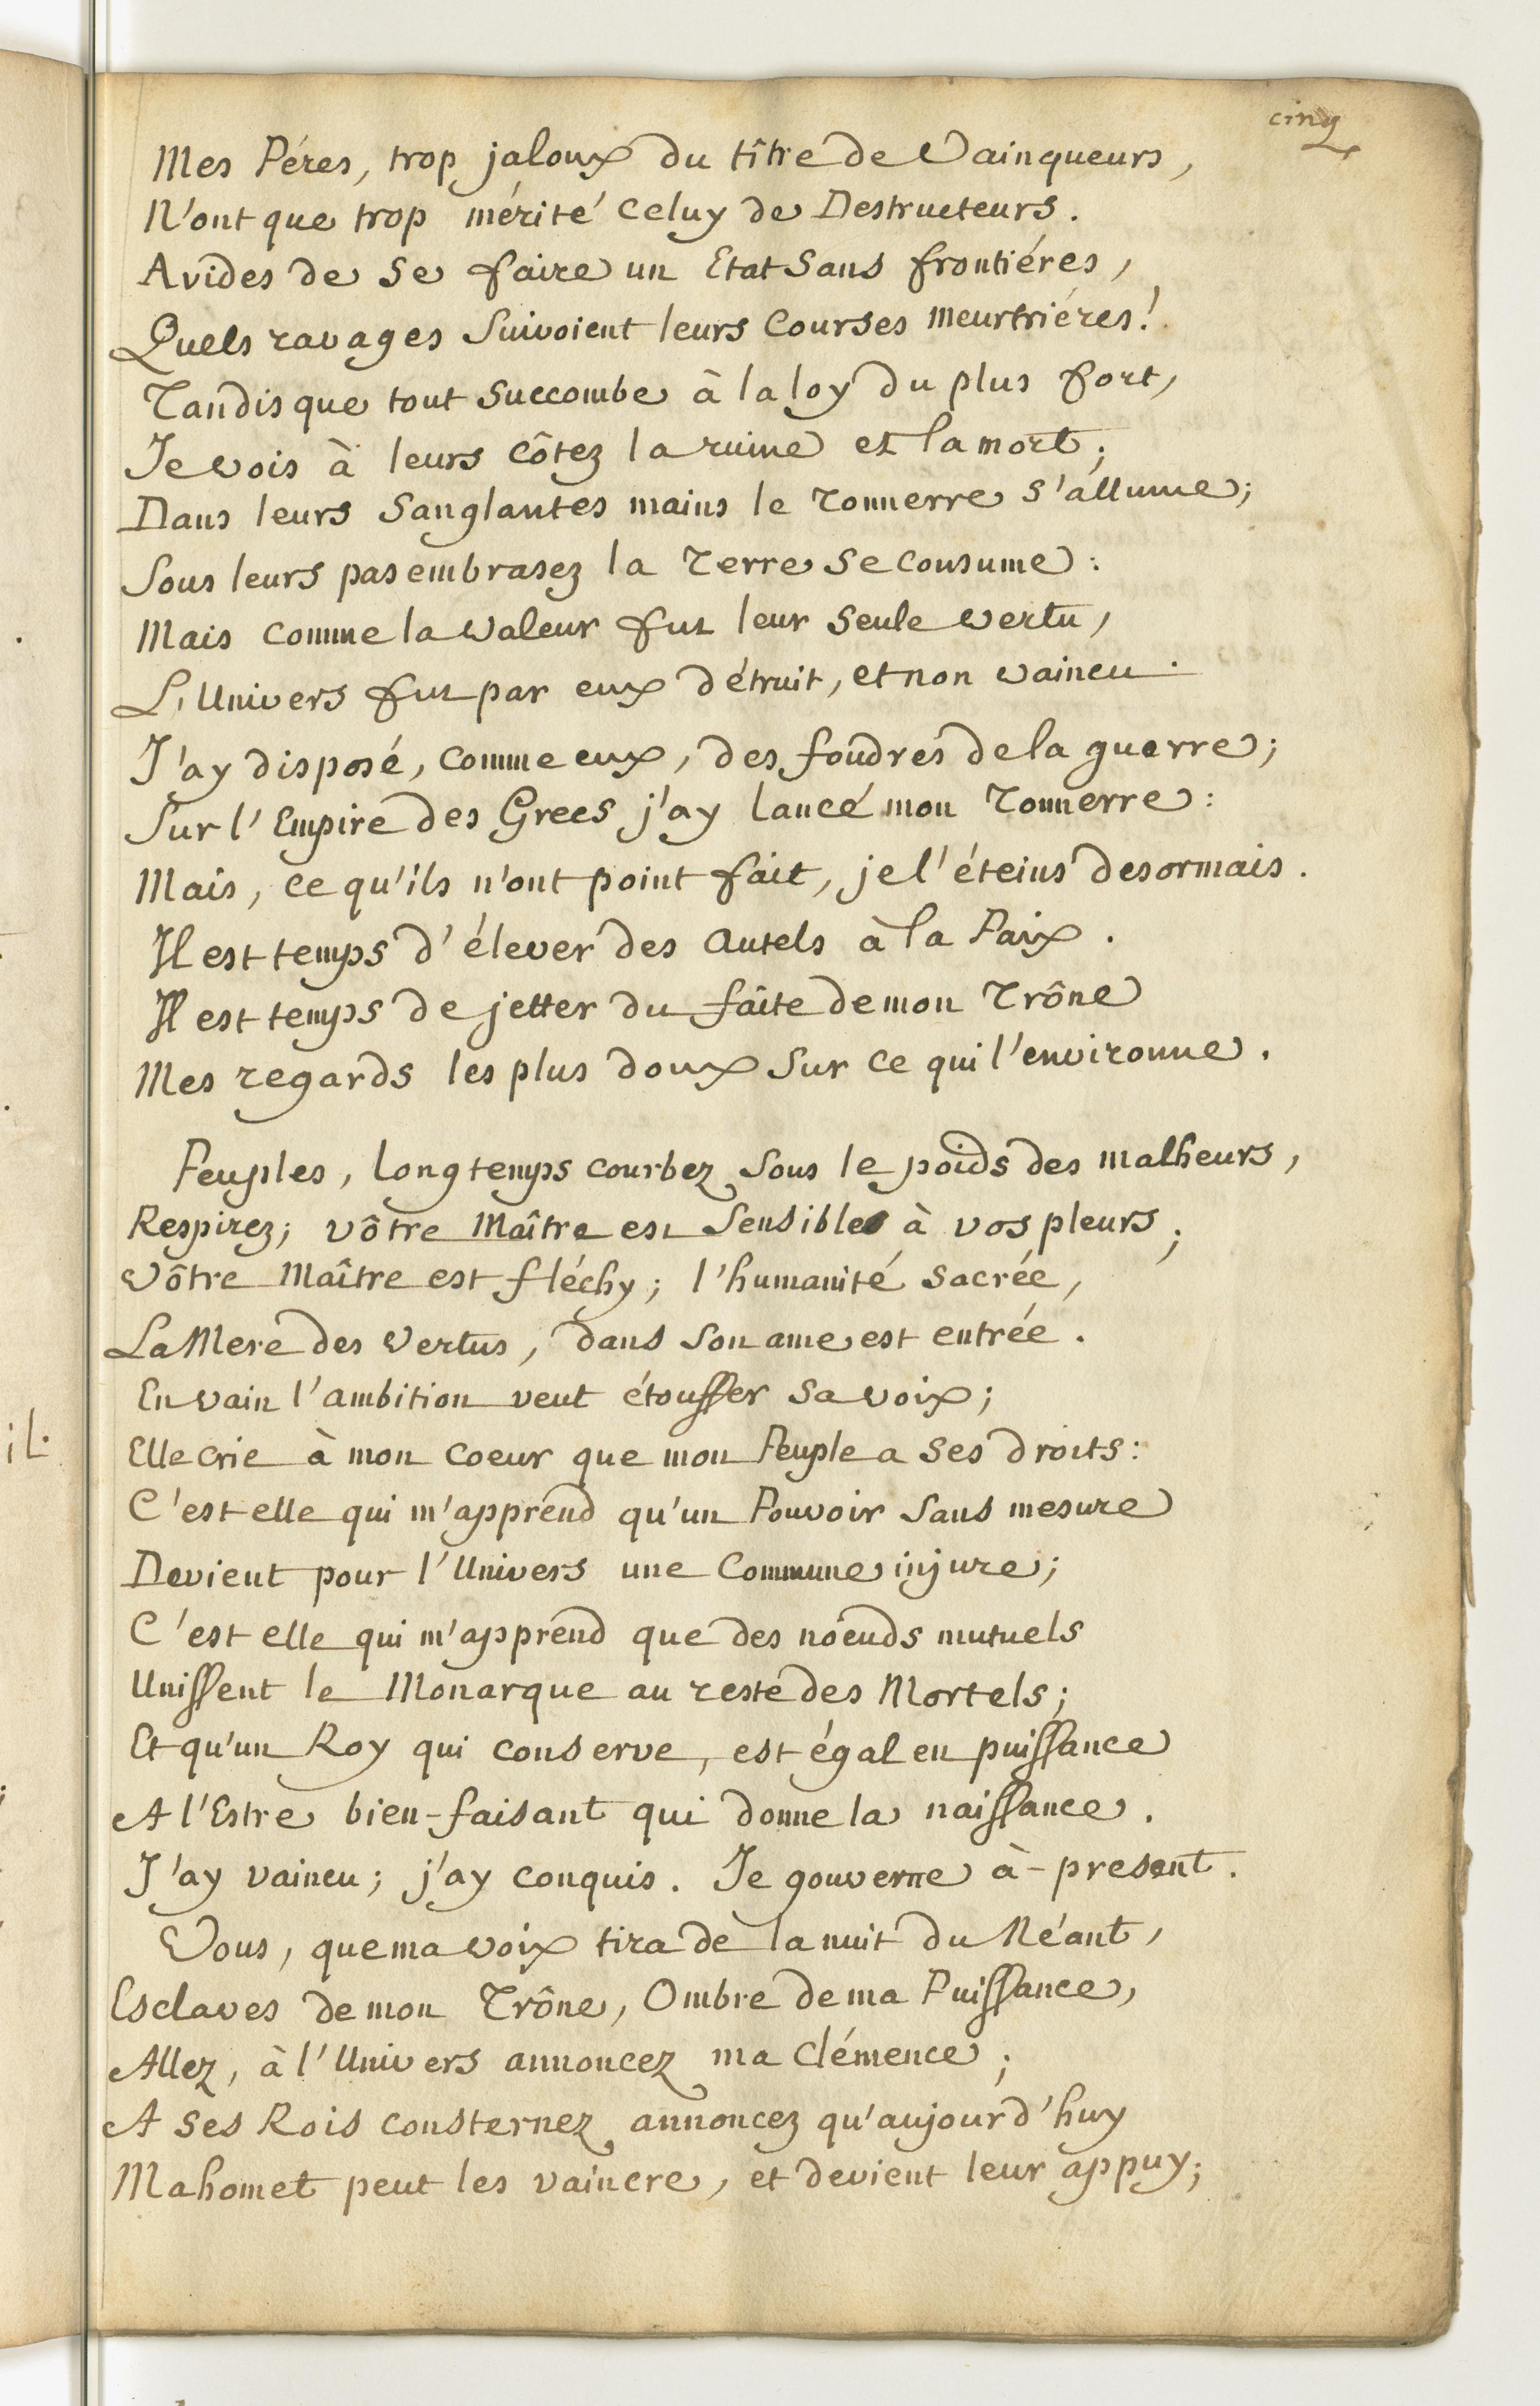 cinq
Mes Péres, trop jaloux du tître de Vainqueurs,
N'ont que trop mérité celuy de Destructeurs.
Avides de se faire un Etat sans frontiéres,
Quels ravages suivoient leurs courses meurtriéres!
Tandis que tout succombe à la loy du plus fort,
Je vois à leurs côtez la ruine et la mort;
Dans leurs sanglantes mains le Tonnerre s'allume;
Sous leurs pas embrasez la Terre se consume:
Mais comme la valeur fut leur seule vertu,
L'Univers fut par eux détruit, et non vaincu.
J'ay disposé, comme eux, des foudres de la guerre;
Sur l'Empire des Grecs j'ay lancé mon Tonnerre:
Mais, ce qu'ils n'ont point fait, je l'éteins desormais.
Il est temps d'élever des Autels à la Paix.
Il est temps de jetter du faîte de mon Trône
Mes regards les plus doux sur ce qui l'environne.
Peuples, longtemps courbez sous le poids des malheurs,
Respirez; vôtre Maître est sensible à vos pleurs;
Vôtre Maître est fléchy; l'humanité sacrée,
La Mere des Vertus, dans son ame est entrée.
En vain l'ambition veut étouffer sa voix;
Elle crie à mon coeur que mon Peuple a ses droits:
C'est elle qui m'apprend qu'un Pouvoir sans mesure
Devient pour l'Univers une commune injure;
C'est elle qui m'apprend que des noeuds mutuels
Unissent le Monarque au reste des Mortels;
Et qu'un Roy qui conserve, est égal en puissance
A l'Estre bien-faisant qui donne la naissance.
J'ay vaincu; j'ay conquis. Je gouverne à-present.
Vous, que ma voix tira de la nuit du Néant,
Esclaves de mon Trône, Ombre de ma Puissance,
Allez, à l'Univers annoncez ma clémence;
A ses Rois consternez annoncez qu'aujourd'huy
Mahomet peut les vaincre, et devient leur appuy;
il.